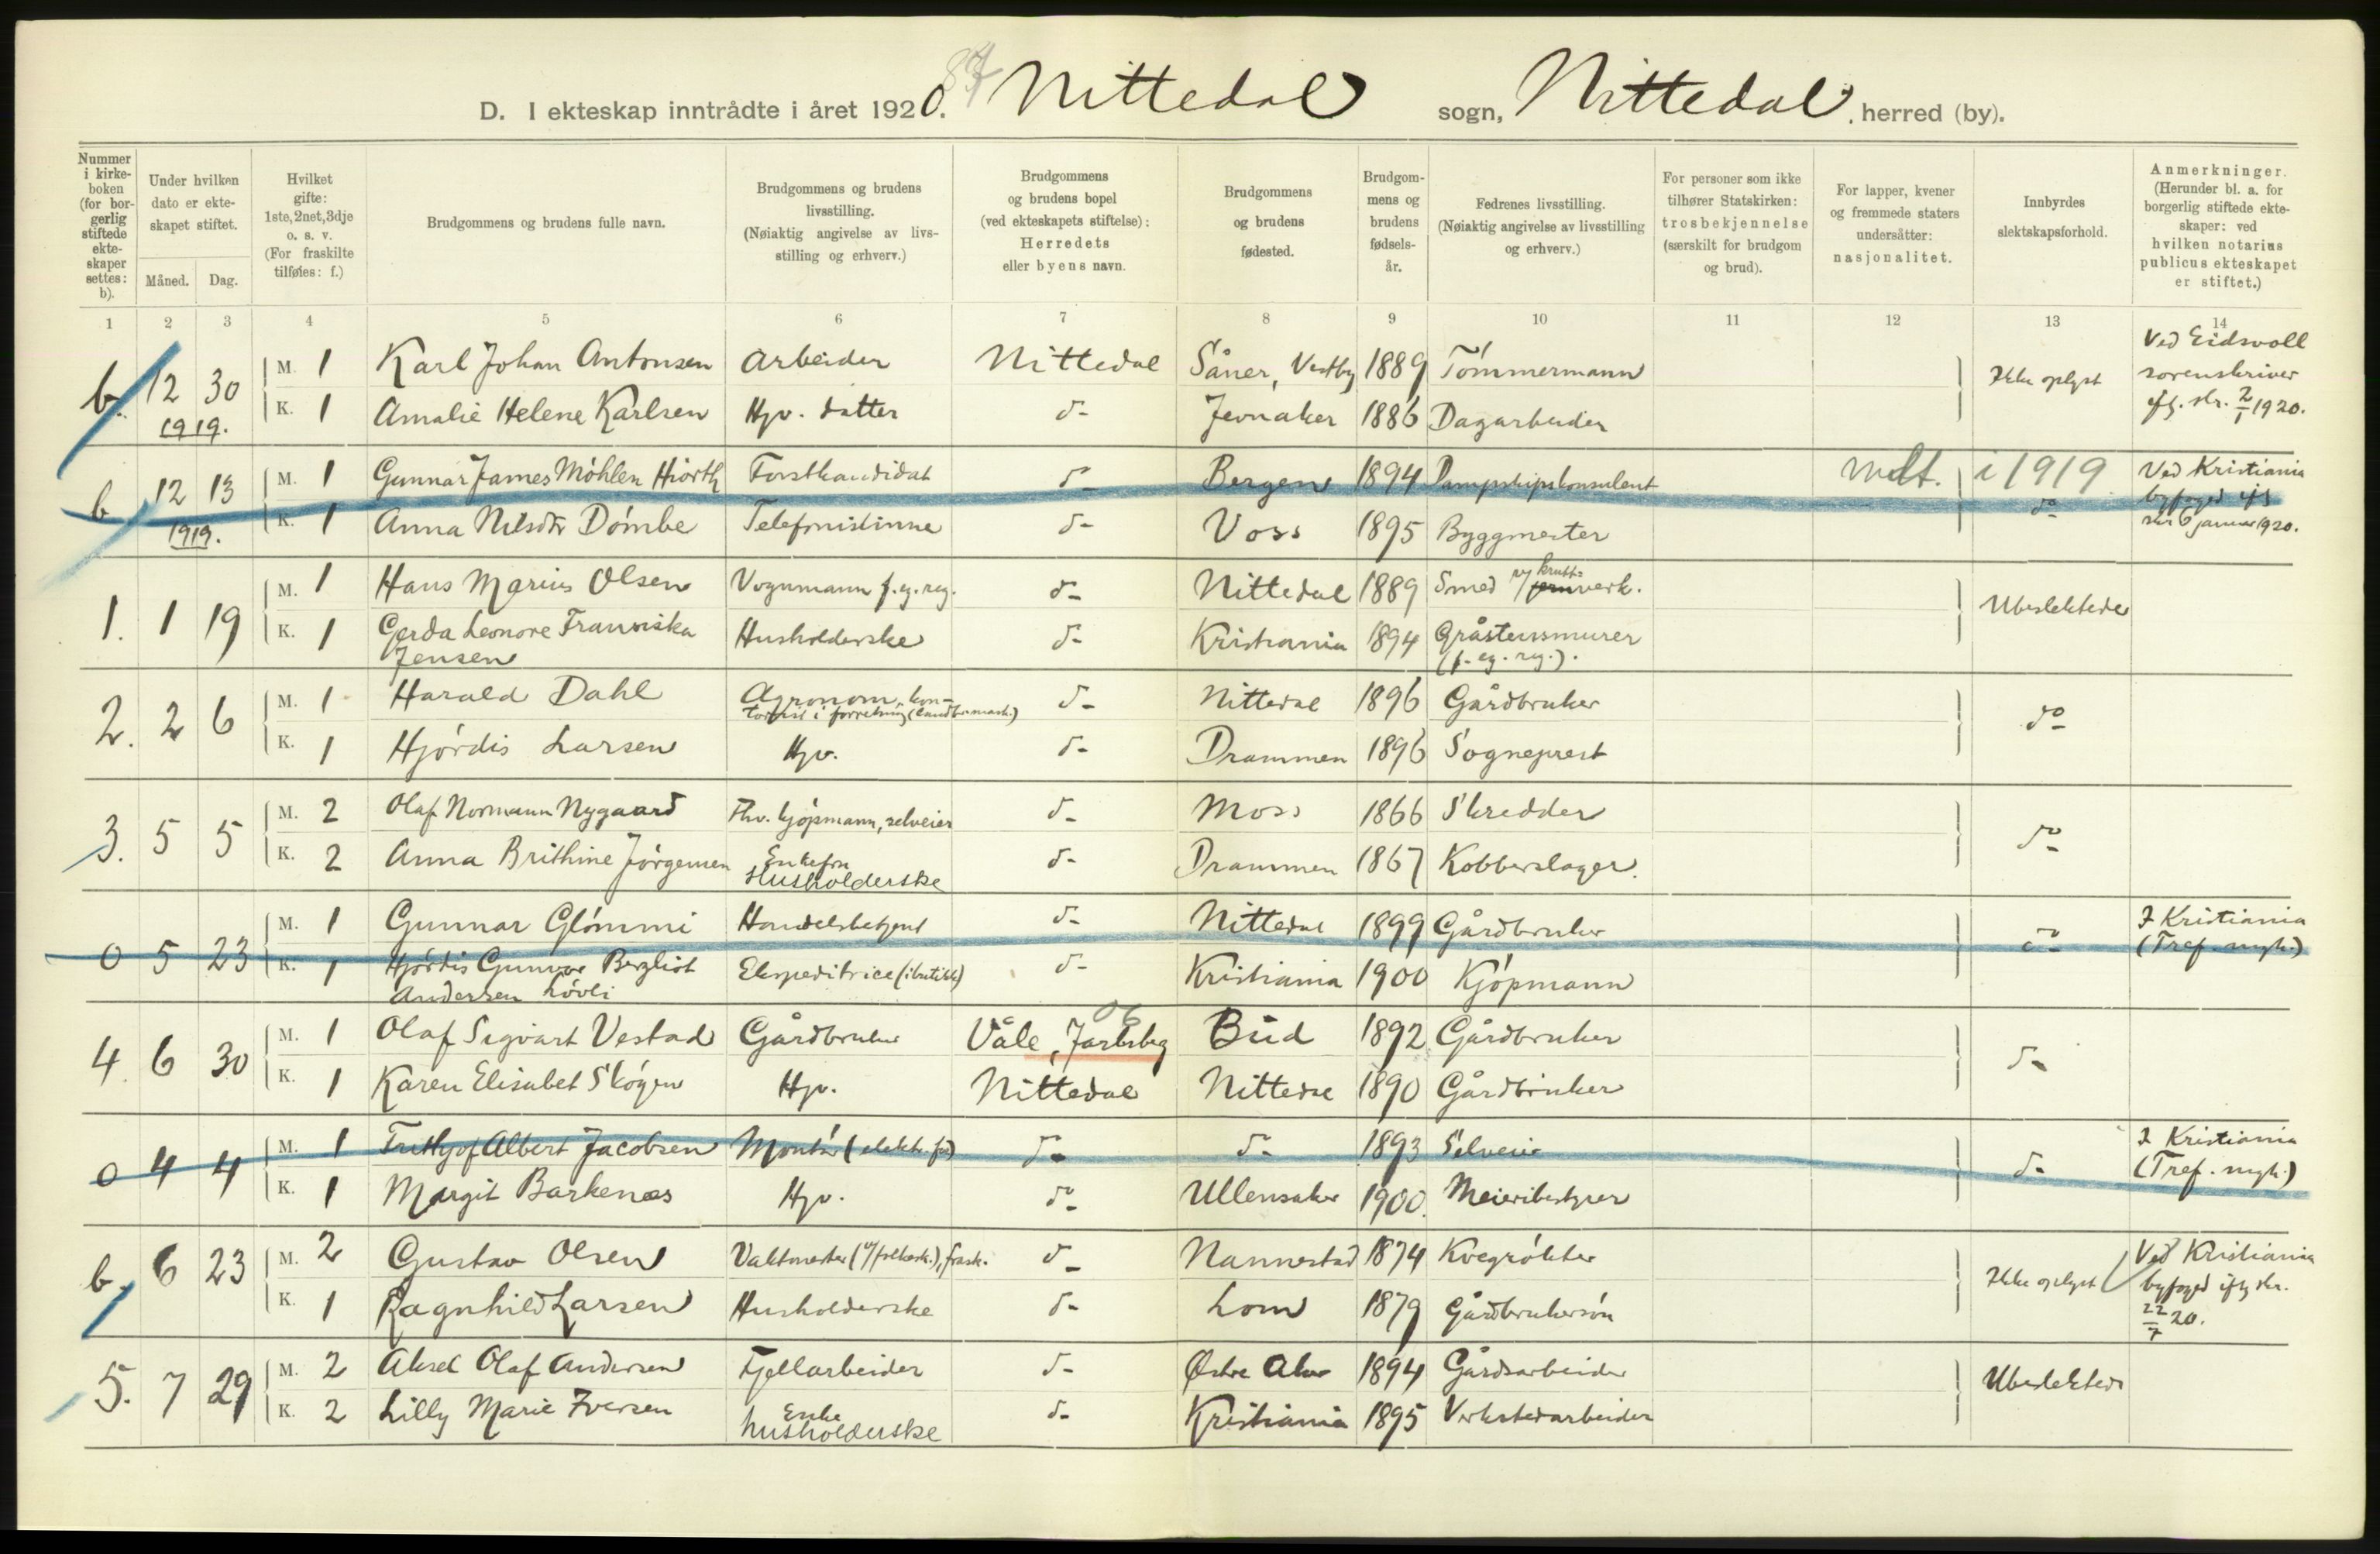 D. I ekteskap inntrådte i året 1920. Nittedal sogn, Nittedal herred (by).
Nummer i kirkeboken (for borgerlig stiftede ekteskaper settes: b).
Under hvilken dato er ekteskapet stiftet.
Måned. Dag.
Hvilket gifte: 1ste, 2net, 3dje o. s. v. (For fraskilte tilføies: f.)
Brudgommens og brudens fulle navn.
Brudgommens og brudens livsstilling. (Nøiaktig angivelse av livsstilling og erhverv.)
Brudgommens og brudens bopel (ved ekteskapets stiftelse): Herredets eller byens navn.
Brudgommens og brudens fødested.
Brudgommens og brudens fødselsår.
Fedrenes livsstilling. (Nøiaktig angivelse av livsstilling og erhverv.)
For personer som ikke tilhører Statskirken: trosbekjennelse (særskilt for brudgom og brud).
For lapper, kvener og fremmede staters undersåtter: nasjonalitet.
Innbyrdes slektskapsforhold.
Anmerkninger. (Herunder bl. a. for borgerlig stiftede ekteskaper: ved hvilken notarius publicus ekteskapet er stiftet.)
1 2 3 4 5 6 7 8 9 10 11 12 13 14
b. 12 30 M. 1 Karl Johan Antonsen Arbeider Nittedal Såner, Vestby 1889 Tömmermann Ikke oplyst Ved Eidsvoll sorenskriver efg. skr. 2/1 1920.
1919. K. 1 Amalie Helene Karlsen Hjv. datter do Jevnaker 1886 Dagarbeider
b 12 13 M. 1 Gunnar James Möhlen Hiorth Forstkandidat do Bergen 1894 Dampskipskonsulent medt. i 1919 do Ved Kristiania byfoged ifg skr 6 januar 1920.
1919. K. 1 Anna Nilsdtr Dömbe Telefonistinne do Voss 1895 Byggmester
1. 1 19 M. 1 Hans Marius Olsen Vognmann f. eg. reg. do Nittedal 1889 Smed v/ krutt- jernverk. Ubeslektede
K. 1 Gerda Leonore Franziska Jensen Husholderske do Kristiania 1894 Gråstensmurer (f. eg. reg.).
2. 2 6 M. 1 Harald Dahl Agronom, kontorist i forretning (landbr.mask.) do Nittedal 1896 Gårdbruker do
K. 1 Hjördis Larsen Hjv. do Drammen 1896 Sogneprest
3. 5 5 M. 2 Olaf Normann Nygaard Fhv. kjöpmann, selveier do Moss 1866 Skredder do
K. 2 Anna Brithine Jörgensen Enkefru Husholderske do Drammen 1867 Kobberslager.
0 5 23 M. 1 Gunnar Glömmi Handelsbetjent do Nittedal 1899 Gårdbruker do I Kristiania (Tref. mgh.)
K. 1 Hjördis Gunvor Bergliot Andersen Lövli Ekspeditrice (i butikk) do Kristiania 1900 Kjöpmann
4. 6 30 M. 1 Olaf Sigvart Vestad Gårdbruker Våle, Jarlsberg Bud 1892 Gårdbruker do
K. 1 Karen Elisabet Skögen Hjv. Nittedal Nittedal 1890 Gårdbruker
0 4 4 M. 1 Frithjof Albert Jacobsen Montör (elektr. fr.) do do 1893 Selveier do I Kristiania (Tref. mgh.)
K. 1 Margit Barkenæs Hjv. do Ullensaker 1900. Meieribestyrer
b. 6 23 M. 2 Gustav Olsen Vaktmester (v/folkesk.), frask. do Nannestad 1874 Kvegrökter Ikke oplyst Ved Kristiania byfoged ifg skr. 22/7 20.
K. 1 Ragnhild Larsen Husholderske do Lom 1879 Gårdbrukersön
5. 7 29 M. 2 Aksel Olaf Andersen Fjellarbeider do Østre Aker 1894 Gårdsarbeider Ubeslektede
K. 2 Lilly Marie Iversen Enke husholderske do Kristiania 1895 Verkstedarbeider